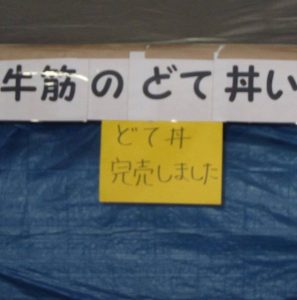 牛筋のどて丼い
どて丼
完売しました